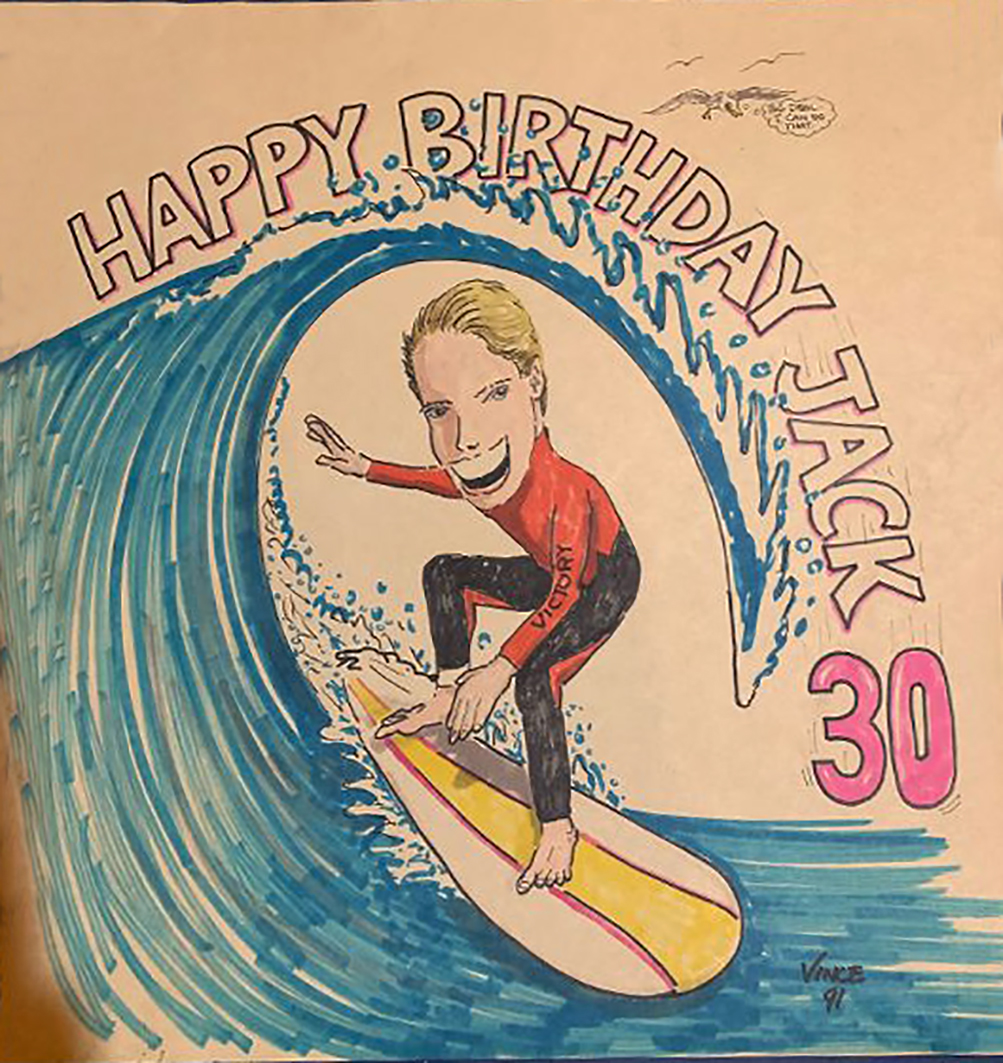 HAPPY BIRTHDAY JACK
30
I CAN DO
THAT
VICTORY
VINCE
91